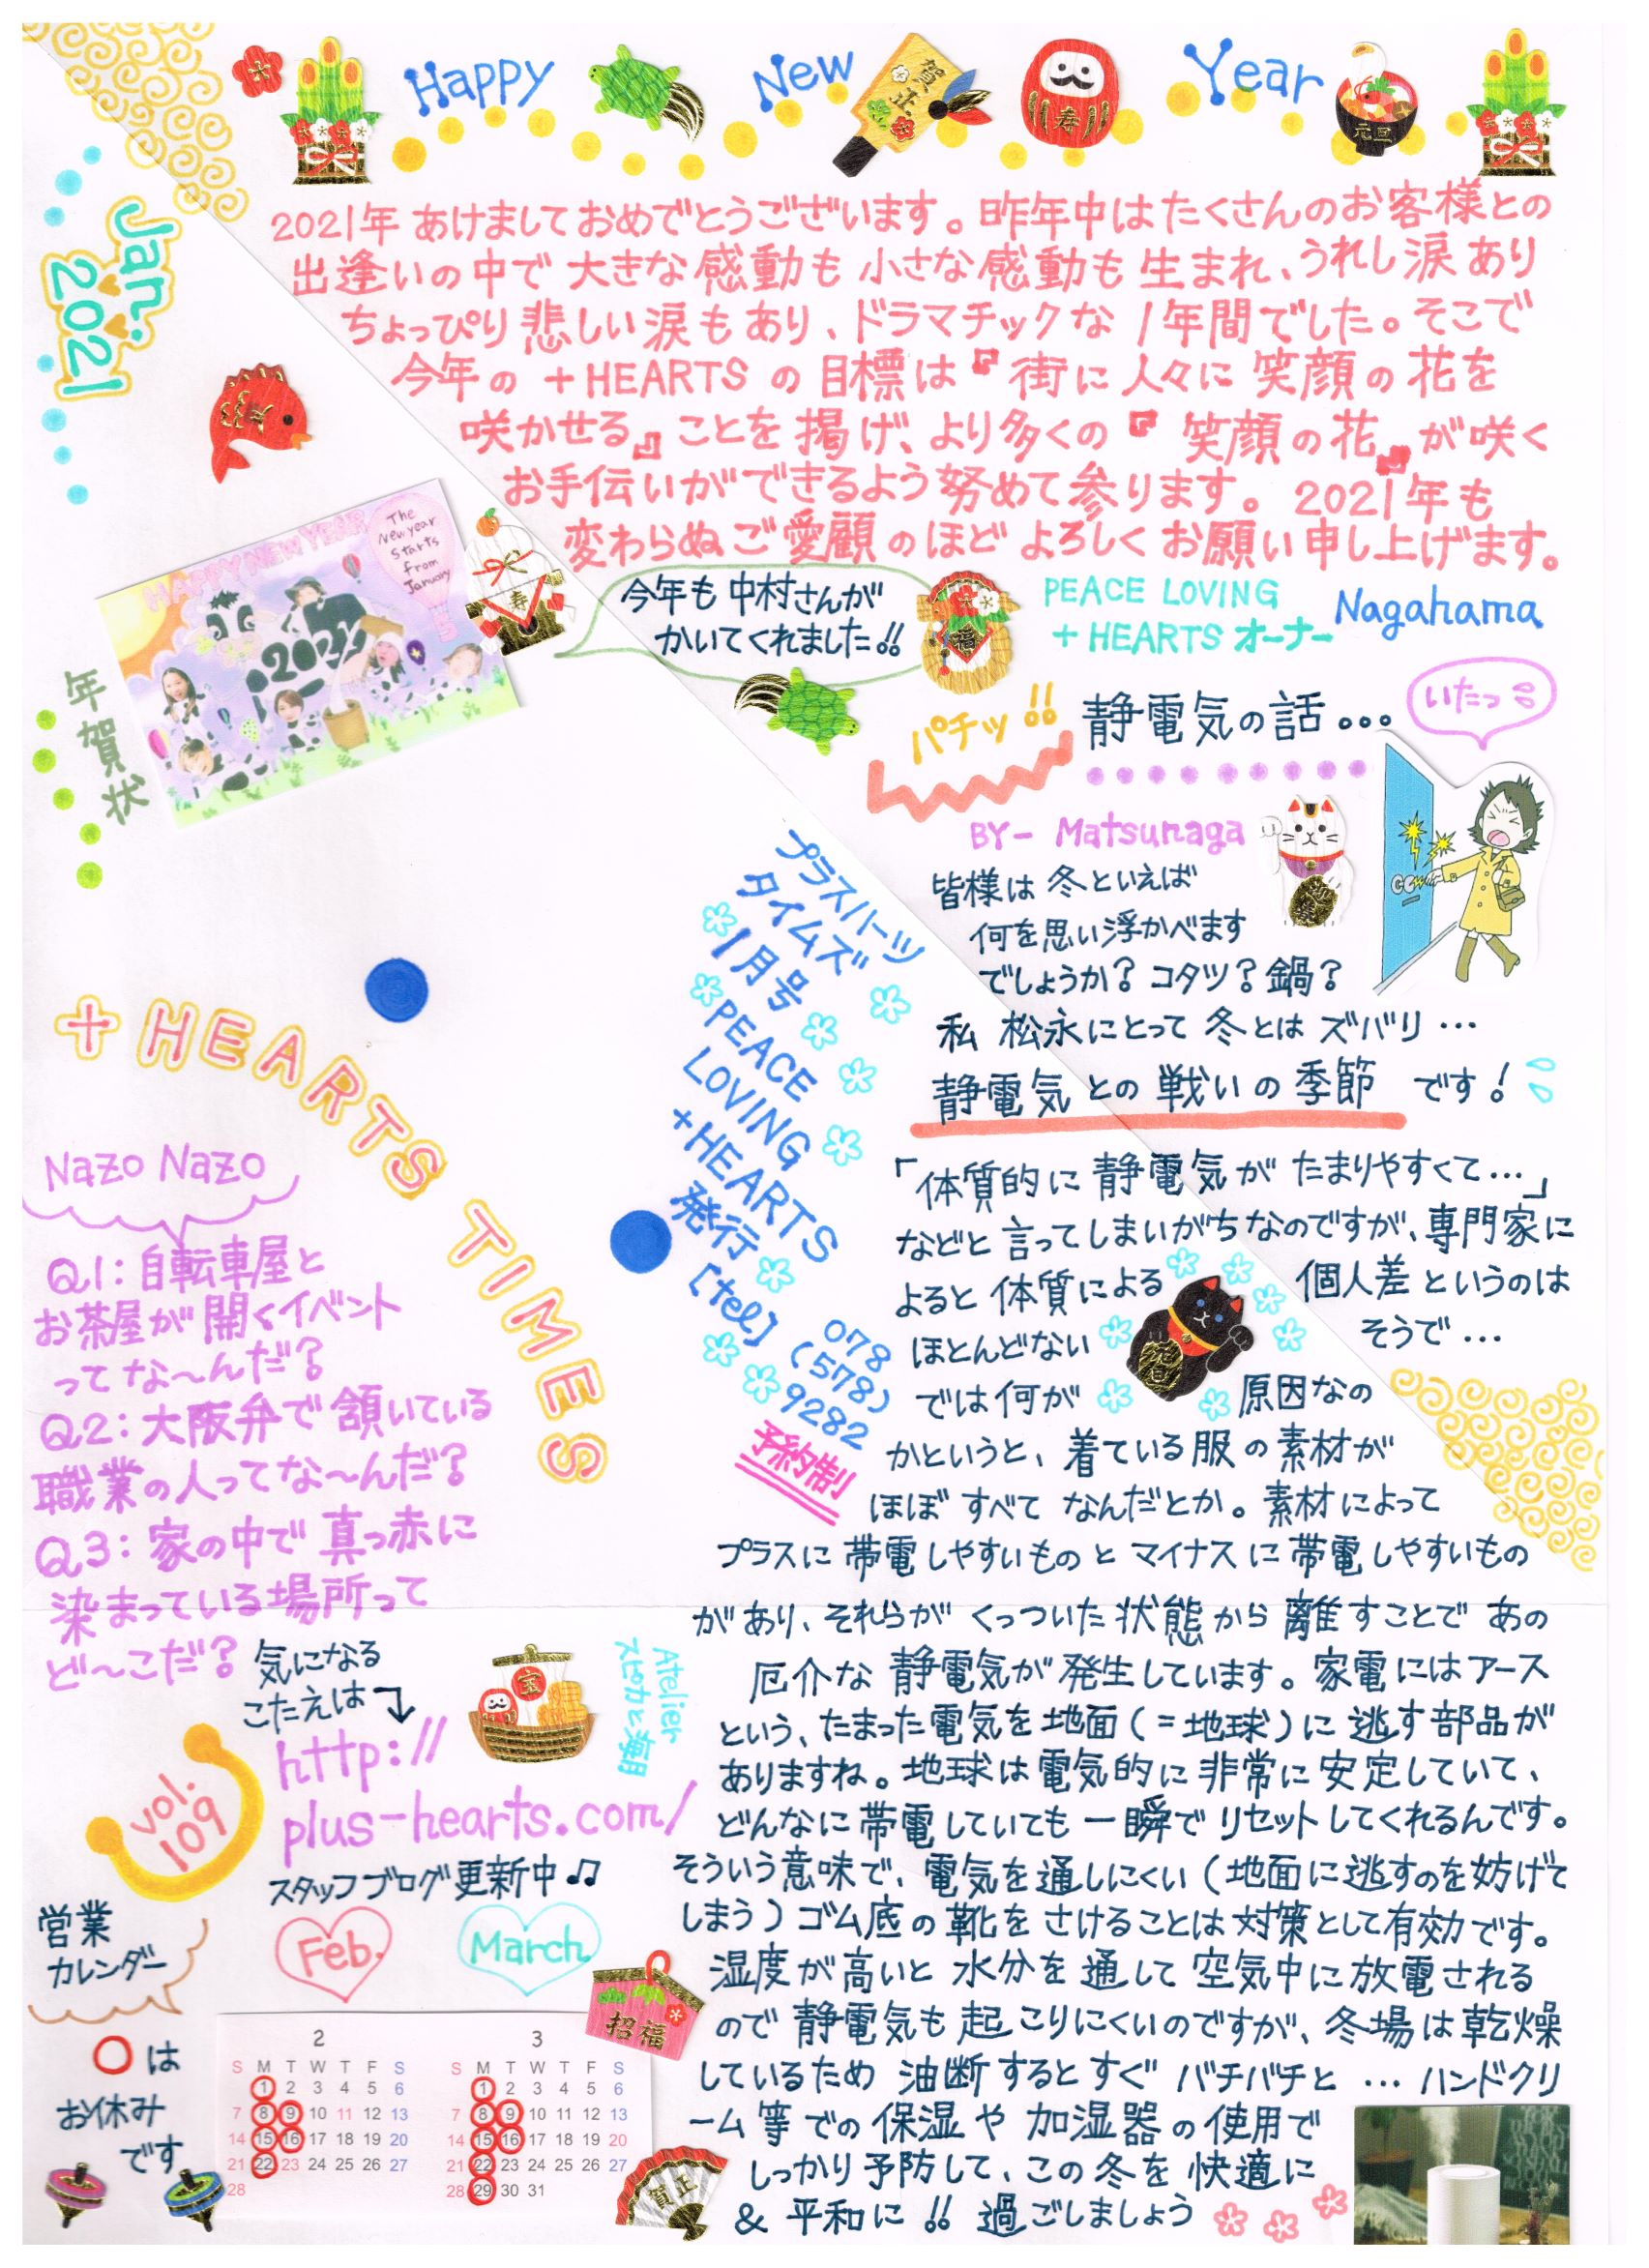 Happy New Year
賀正
寿
元旦
Jan. 2021
2021年 あけましておめでとうございます。昨年中はたくさんのお客様との
出逢いの中で 大きな感動も 小さな感動も 生まれ、うれし涙あり
ちょっぴり悲しい涙もあり、ドラマチックな 1年間でした。そこで
今年の +HEARTS の目標は『街に人々に笑顔の花を
咲かせる』ことを掲げ、より多くの『笑顔の花』が咲く
お手伝いができるよう努めて参ります。2021年も
変わらぬご愛顧のほど よろしくお願い申し上げます。
PEACE LOVING
+HEARTS オーナー Nagahama
HAPPY NEW YEAR
The
New year
starts
from
January
2021
寿
今年も中村さんが
かいてくれました!!
福
年賀状
パチッ!! 静電気の話...
いたっ
BY- Matsunaga
皆様は冬といえば
何を思い浮かべます
でしょうか?コタツ?鍋?
私 松永にとって冬とは ズバリ…
静電気との戦いの季節 です!
「体質的に静電気が たまりやすくて…」
などと言ってしまいがちなのですが、専門家に
よると体質による 個人差というのは
ほとんどない そうで…
では何が 原因なの
かというと、着ている服の素材が
ほぼすべて なんだとか。素材によって
プラスに帯電しやすいものとマイナスに帯電しやすいもの
があり、それらが くっついた状態から離すことで あの
厄介な静電気が発生しています。家電にはアース
という、たまった電気を地面(=地球)に逃す部品が
ありますね。地球は電気的に非常に安定していて、
どんなに帯電していても一瞬でリセットしてくれるんです。
そういう意味で、電気を通しにくい(地面に逃すのを妨げて
しまう)ゴム底の靴をさけることは対策として有効です。
湿度が高いと水分を通して空気中に放電される
ので静電気も起こりにくいのですが、冬場は乾燥
しているため 油断するとすぐ バチバチと … ハンドクリ
ーム等での保湿や加湿器の使用で
しっかり予防して、この冬を快適に
& 平和に!! 過ごしましょう
プラスハーツ
タイムズ
1月号
PEACE
LOVING
+HEARTS
発行
[tel] 078
(578)
9282
予約制
+HEARTS TIMES
Nazo Nazo
Q1:自転車屋と
お茶屋が開くイベント
ってな〜んだ?
Q2:大阪弁で頷いている
職業の人ってな〜んだ?
Q3:家の中で真っ赤に
染まっている場所って
ど〜こだ?
気になる
こたえは
http://
plus-hearts.com/
スタッフブログ更新中♫
宝
Atelier
スピカと海月
vol.
109
営業
カレンダー
○は
お休み
です
Feb. March
招福
2
S M T W T F S
1 2 3 4 5 6
7 8 9 10 11 12 13
14 15 16 17 18 19 20
21 22 23 24 25 26 27
28
3
S M T W T F S
1 2 3 4 5 6
7 8 9 10 11 12 13
14 15 16 17 18 19 20
21 22 23 24 25 26 27
28 29 30 31
賀正